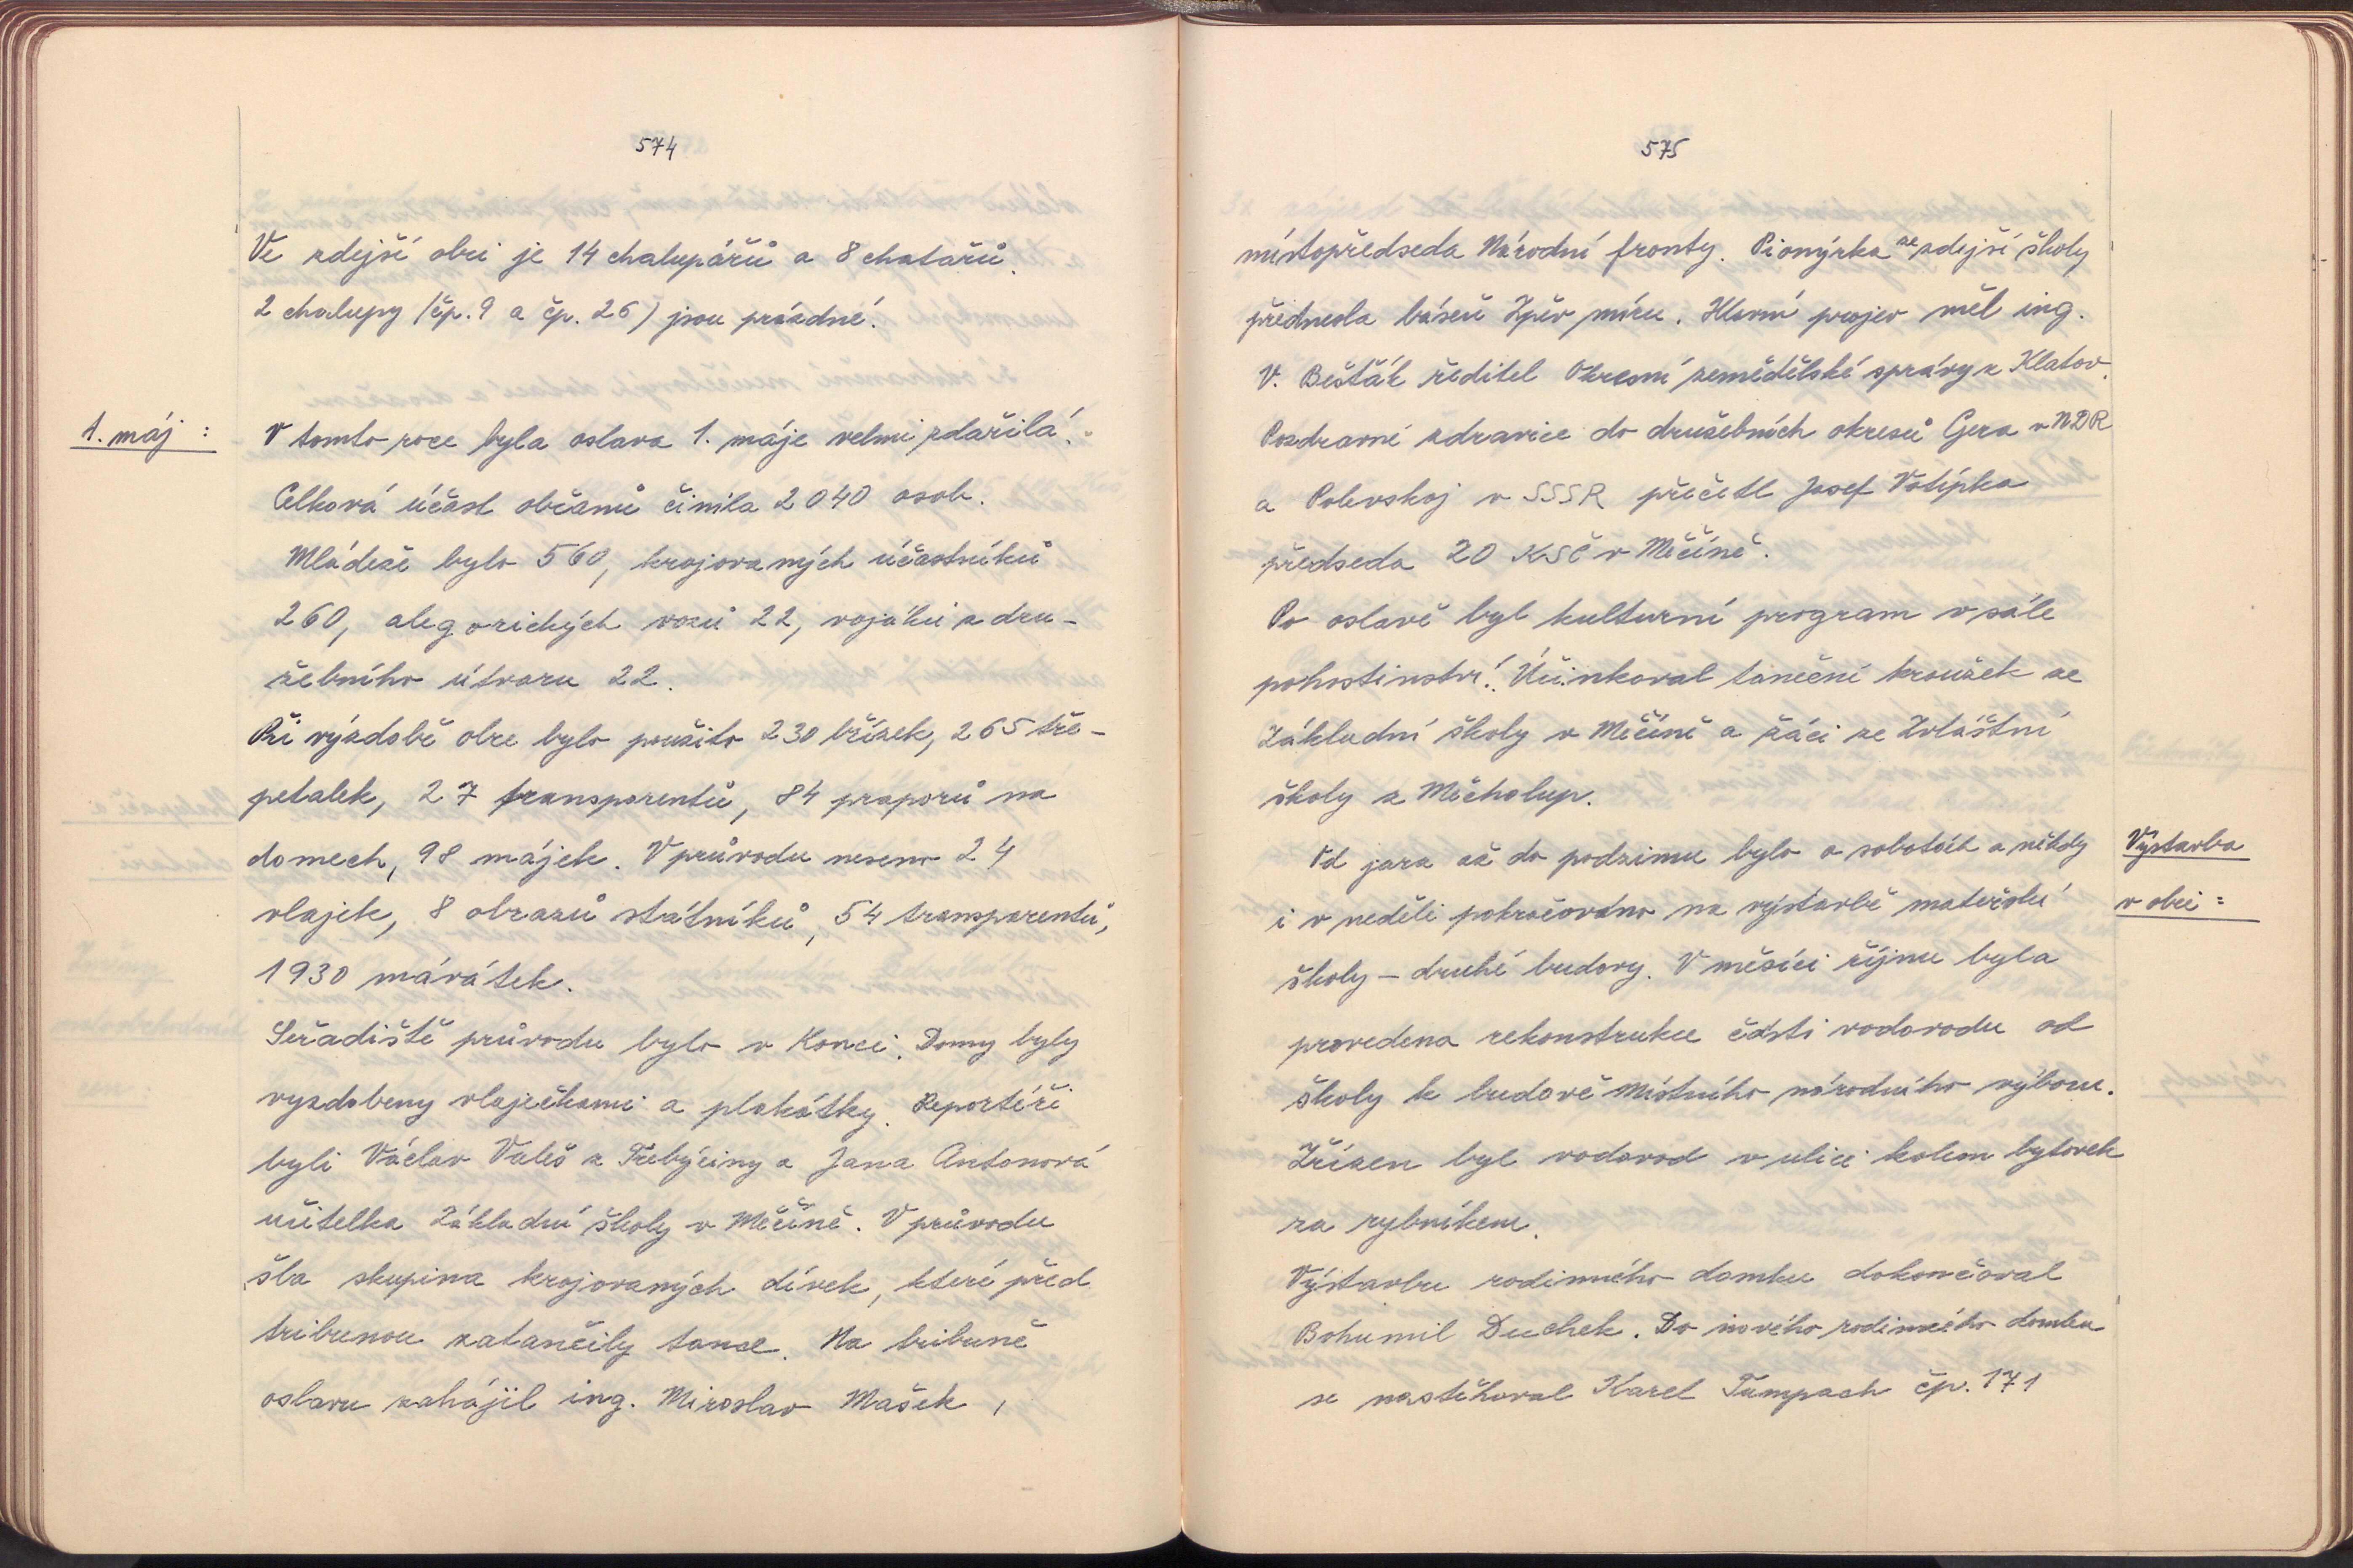 574
Ve zdejší obci je 14 chalupářů a 8 chatařů.
2 chalupy /čp. 9 a čp. 26/ jsou prázdné.
1. máj :
V tomto roce byla oslava 1. máje velmi zdařilá.
Celková účast občanů činila 2 040 osob.
Mládeže bylo 560, krojovaných účastníků
260, alegorických vozů 22, vojáků z dru-
žebního útvaru 22.
Při výzdobě obce bylo použito 230 břízek, 265 tře-
petalek, 27 transparentů, 84 praporů na
domech, 98 májek. V průvodu neseno 24
vlajek, 8 obrazů státníků, 54 transparentů,
1930 mávátek.
Seřadiště průvodu bylo v Konci. Domy byly
vyzdobeny vlaječkami a plakátky. Reportéři
byli Václav Valeš z Třebýciny a Jana Antonová
učitelka Základní školy v Měčíně. V průvodu
šla skupina krojovaných dívek, které před
tribunou zatančily tance. Na tribuně
oslavu zahájil ing. Miroslav Mašek,
575
místopředseda Národní fronty. Pionýrka ze zdejší školy
přednesla báseň Zpěv míru. Hlavní projev měl ing.
V. Bešťák ředitel Okresní zemědělské správy z Klatov.
Pozdravné zdravice do družebních okresů Gera v NDR
a Polevskoj v SSSR přečetl Josef Votípka
předseda ZO KSČ v Měčíně.
Po oslavě byl kulturní program v sále
pohostinství. Účinkoval taneční kroužek ze
Základní školy v Měčíně a žáci ze Zvláštní
školy z Měcholup.
Výstavba
v obci :
Od jara až do podzimu bylo o sobotách a někdy
i v neděli pokračováno na výstavbě mateřské
školy – druhé budovy. V měsíci říjnu byla
provedena rekonstrukce části vodovodu od
školy k budově Místního národního výboru.
Zřízen byl vodovod v ulici kolem bytovek
za rybníkem.
Výstavbu rodinného domku dokončoval
Bohumil Duchek. Do nového rodinného domku
se nastěhoval Karel Tumpach čp. 171